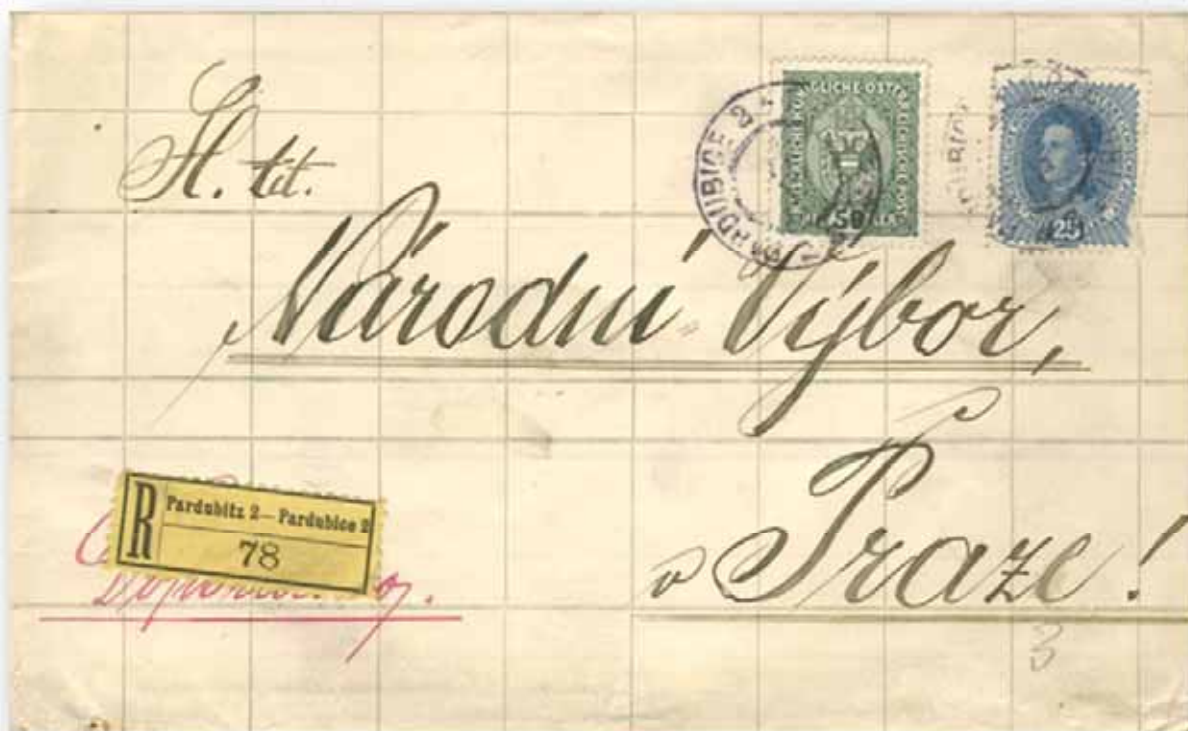 Sl. tit.
Národní Výbor,
v Praze!
R Pardubitz 2 — Pardubice 2
78
PARDUBICE 2
50
25
3